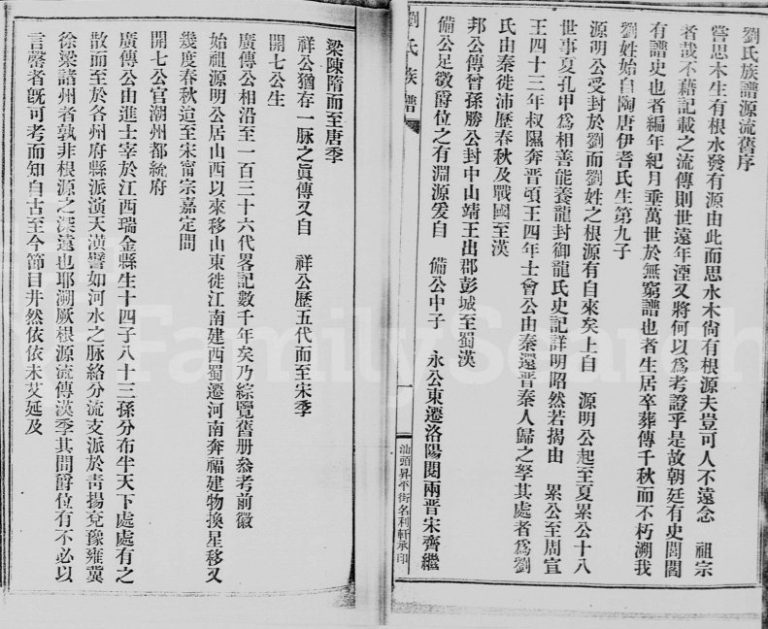 劉氏族譜源流舊序
嘗思木生有根水發有源由此而思水木尙有根源夫豈可人不遠念　祖宗
者哉不藉記載之流傳則世遠年湮又將何以為考證乎是故朝廷有史閭閻
有譜史也者編年紀月垂萬世於無窮譜也者生居卒葬傳千秋而不朽溯我
劉姓始自陶唐伊耆氏生第九子
源明公受封於劉而劉姓之根源有自來矣上自　源明公起至夏累公十八
世事夏孔甲為相善能養龍封御龍氏史記詳明昭然若揭由　累公至周宣
王四十三年叔隰奔晋頃王四年士會公由秦還晋秦人歸之孥其處者為劉
氏由秦徙沛歷春秋及戰國至漢
邦公傳曾孫勝公封中山靖王出郡彭城至蜀漢
備公足徵爵位之有淵源爰自　備公中子　永公東遷洛陽閱兩晋宋齊繼
劉氏族譜
汕頭昇平街名利軒承印
梁陳隋而至唐季
祥公猶存一脉之眞傳又自　祥公歷五代而至宋季
開七公生
廣傳公相沿至一百三十六代畧記數千年矣乃綜覽舊册叅考前徽
始祖源明公居山西以來移山東徙江南建西蜀遷河南奔福建物換星移又
幾度春秋迨至宋甯宗嘉定間
開七公官潮州都統府
廣傳公由進士宰於江西瑞金縣生十四子八十三孫分布半天下處處有之
散而至於各州府縣派演天潢譬如河水之脉絡分流支派於靑揚兗豫雍冀
徐梁諸州者孰非根源之深遠也耶溯厥根源流傳漢季其間爵位有不必以
言罄者旣可考而知自古至今節目井然依依未艾延及
FamilySearch